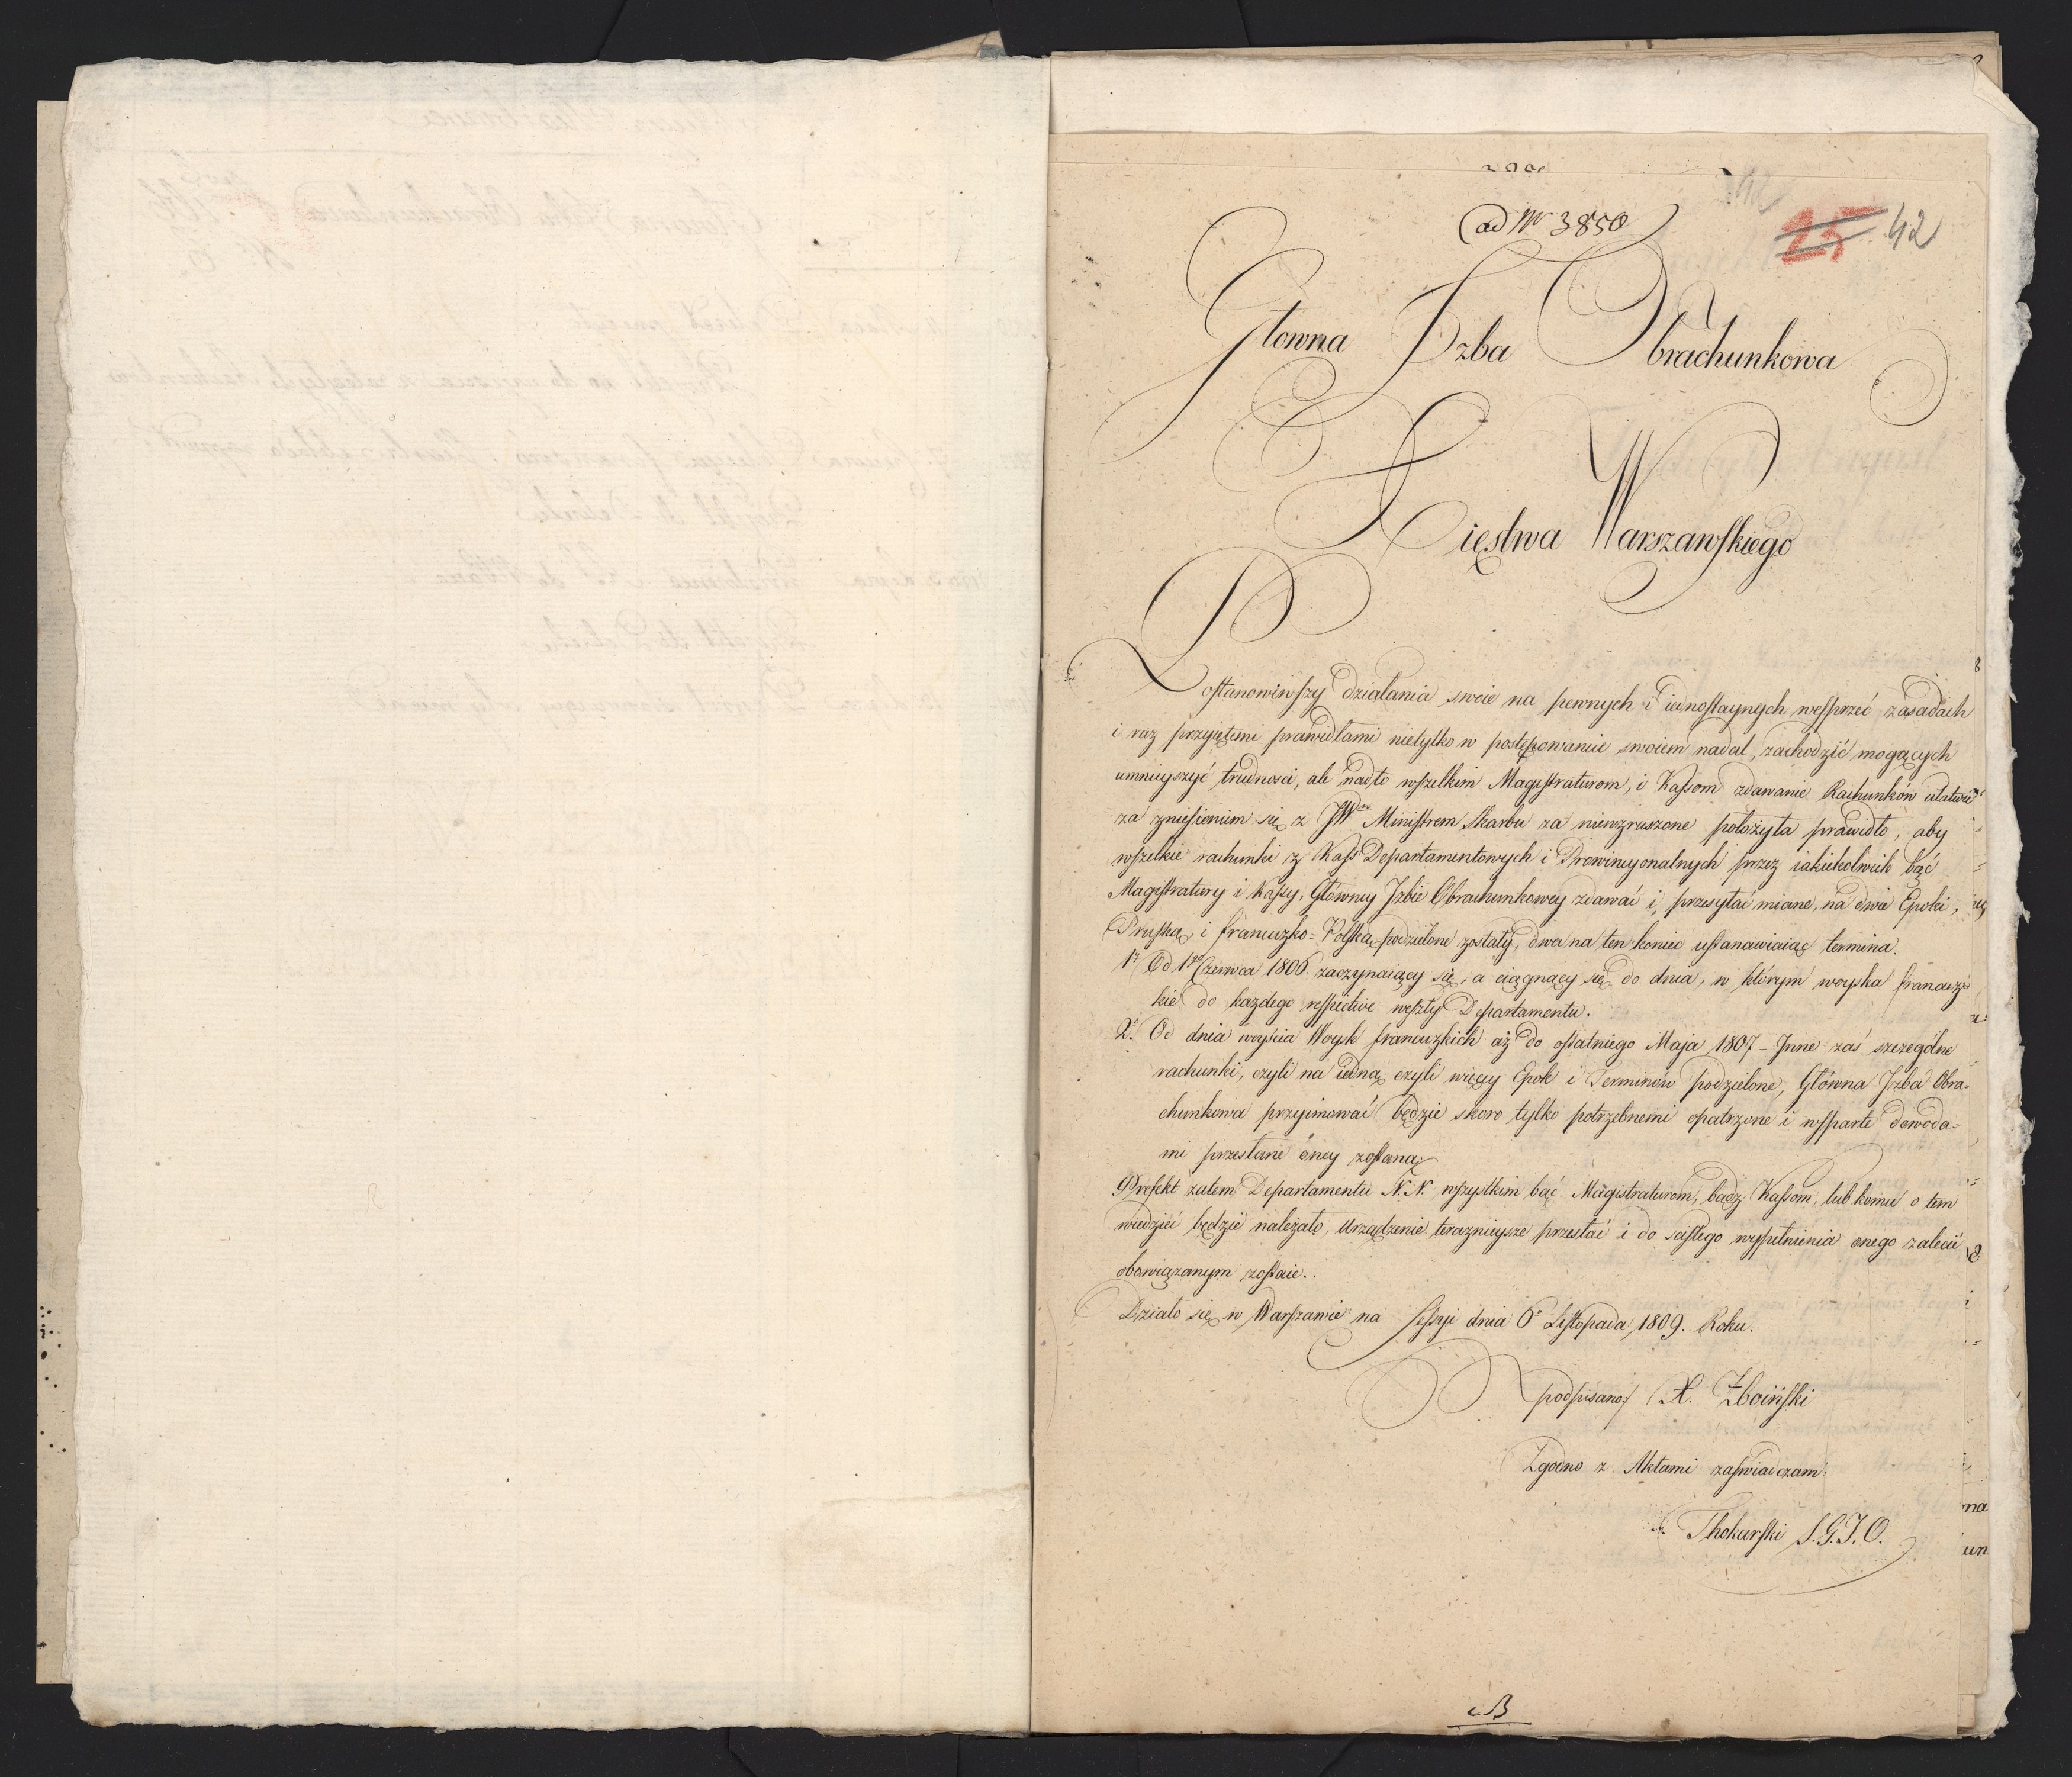 ad Nr 3850
25 42
Głowna Izba Obrachunkowa
Xięstwa Warszawskiego
Postanowiwszy działania swoie na pewnych i iednostaynych wesprzeć zasadach
i raz przyiętemi prawidłami nietylko w postępowaniu swoiem nadal, zachodzić mogących
umnieyszyć trudności, ale nadto wszelkim Magistraturom, i Kassom zdawanie Rachunków ułatwić
za zniesieniem się z JW Ministrem Skarbu za niewzruszone położyła prawidło, aby
wszelkie rachunki z Kass Departamentowych i Prowincyonalnych przez iakiekolwiek bąć
Magistratury i Kassy, Główney Izbie Obrachunkowey zdawać i przesyłać miane, na dwie Epoki,
Pruską, i francuzko=Polską podzielone zostały, dwa na ten koniec ustanawiaiąc termina.
1o Od 1go Czerwca 1806. zaczynaiący się, a ciągnący się do dnia, w którym woyska francuz=
kie do każdego respective weszły Departamentu.
2o Od dnia weyścia Woysk francuzkich aż do ostatniego Maja 1807 - Inne zaś szczególne
rachunki, czyli na iedną czyli więcey Epok i Terminów podzielone, Główna Izba Obra=
chunkowa przyimować będzie skoro tylko potrzebnemi opatrzone i wsparte dowoda=
mi przesłane óney zostaną.
Prefekt zatem Departamentu N.N. wszystkim bąć Magistraturom, bądz Kassom, lub komu o tem
wiedzieć będzie należało, Urządzenie terazniejsze przesłać i do scisłego wypełnienia onego zalecić
obowiązanym zostaie.
Działo się w Warszawie na Sessyi dnia 6o Listopada 1809. Roku.
podpisano/ X. Zboiński
Zgodno z Aktami zaświadczam.
Thokarski S.G.I.O.
B